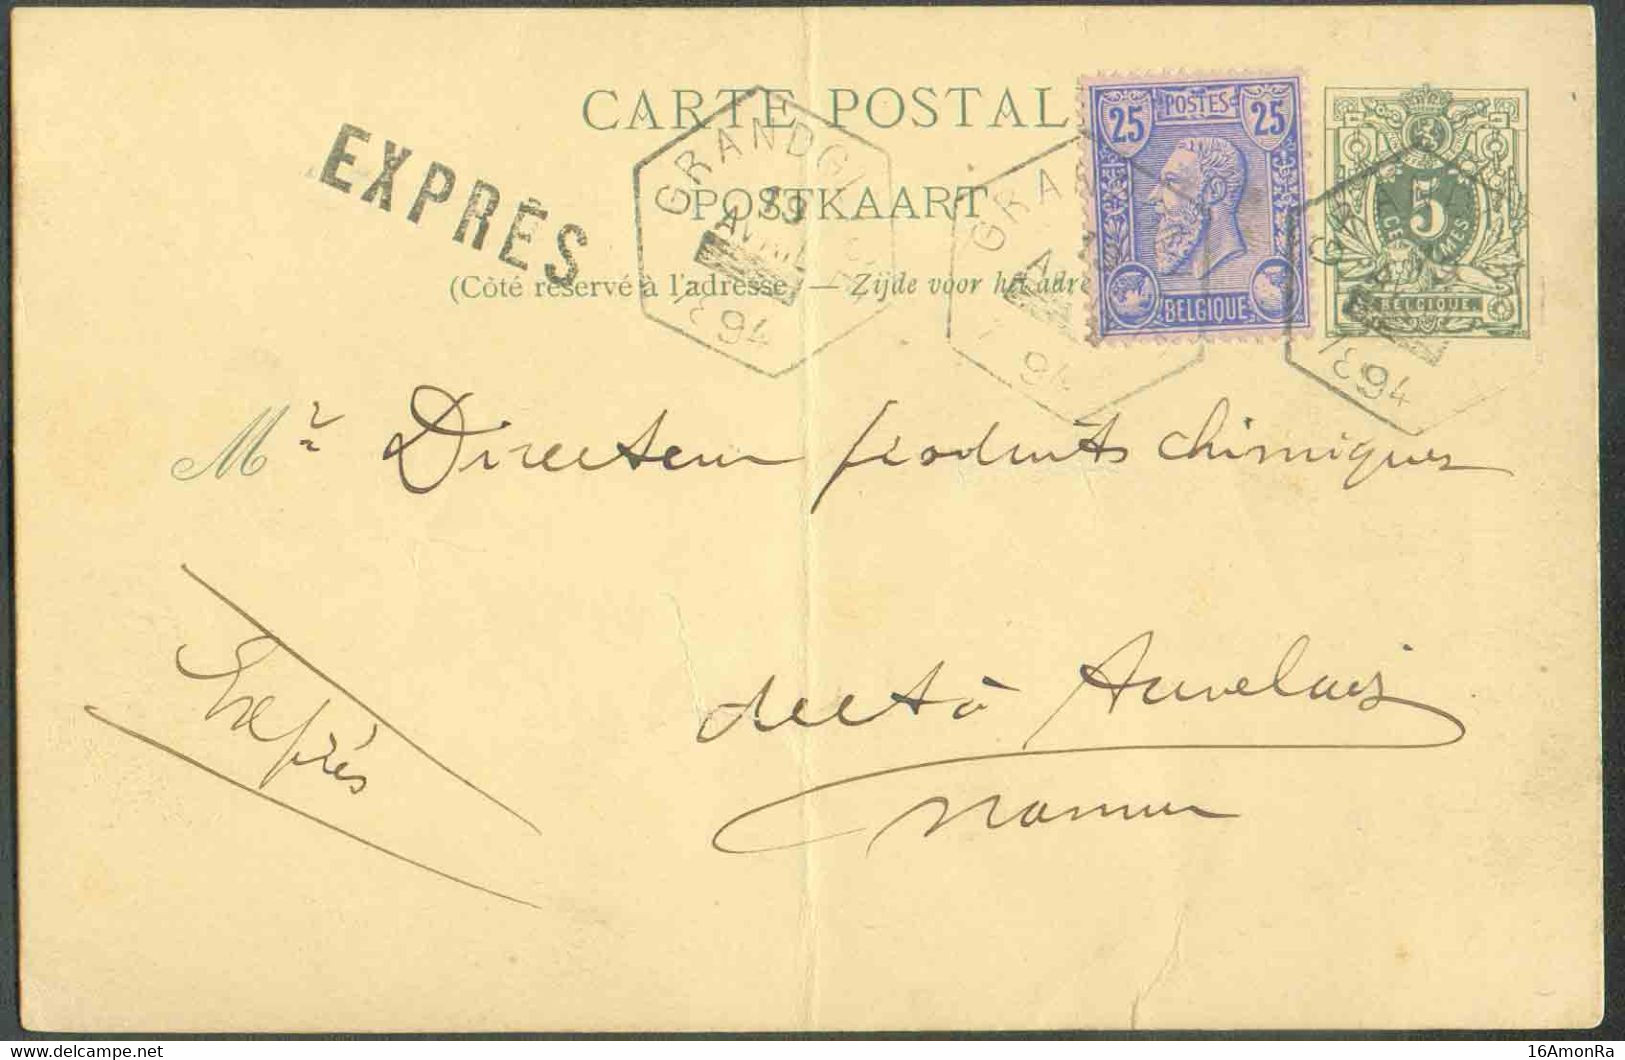 CARTE POSTAL
POSTKAART
(Côté réservé à l'adresse. — Zijde voor het adre
EXPRÈS
25 POSTES 25
BELGIQUE
5
CENTIMES
BELGIQUE
GRANDGL
19
AVRIL
94
GRA
A
94
GRA
1894
Mr Directeur produits chimiques
Exprès
à Auvelais
Namur
www.delcampe.net
16AmonRa